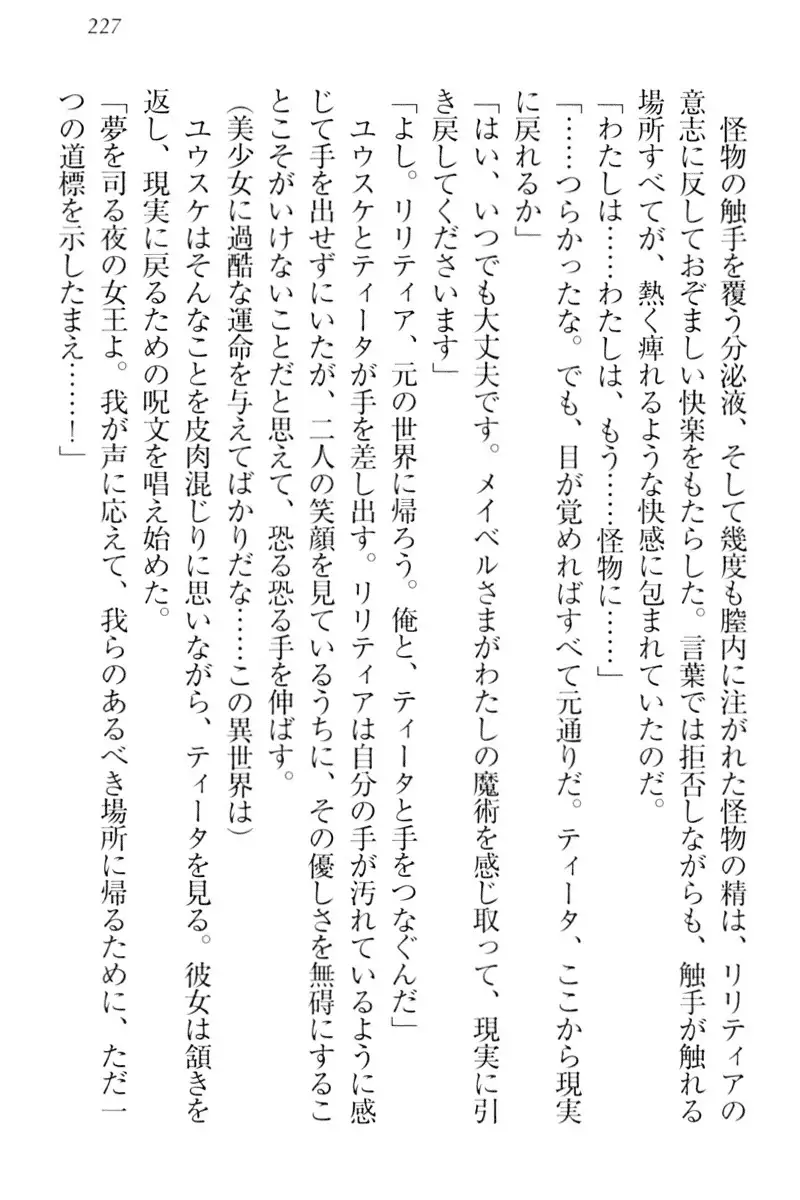 227
怪物の触手を覆う分泌液、そして幾度も膣内に注がれた怪物の精は、リリティアの
意志に反しておぞましい快楽をもたらした。言葉では拒否しながらも、触手が触れる
場所すべてが、熱く痺れるような快感に包まれていたのだ。
「わたしは……わたしは、もう……怪物に……」
「……つらかったな。でも、目が覚めればすべて元通りだ。ティータ、ここから現実
に戻れるか」
「はい、いつでも大丈夫です。メイベルさまがわたしの魔術を感じ取って、現実に引
き戻してくださいます」
「よし。リリティア、元の世界に帰ろう。俺と、ティータと手をつなぐんだ」
ユウスケとティータが手を差し出す。リリティアは自分の手が汚れているように感
じて手を出せずにいたが、二人の笑顔を見ているうちに、その優しさを無碍にするこ
とこそがいけないことだと思えて、恐る恐る手を伸ばす。
（美少女に過酷な運命を与えてばかりだな……この異世界は）
ユウスケはそんなことを皮肉混じりに思いながら、ティータを見る。彼女は頷きを
返し、現実に戻るための呪文を唱え始めた。
「夢を司る夜の女王よ。我が声に応えて、我らのあるべき場所に帰るために、ただ一
つの道標を示したまえ……！」